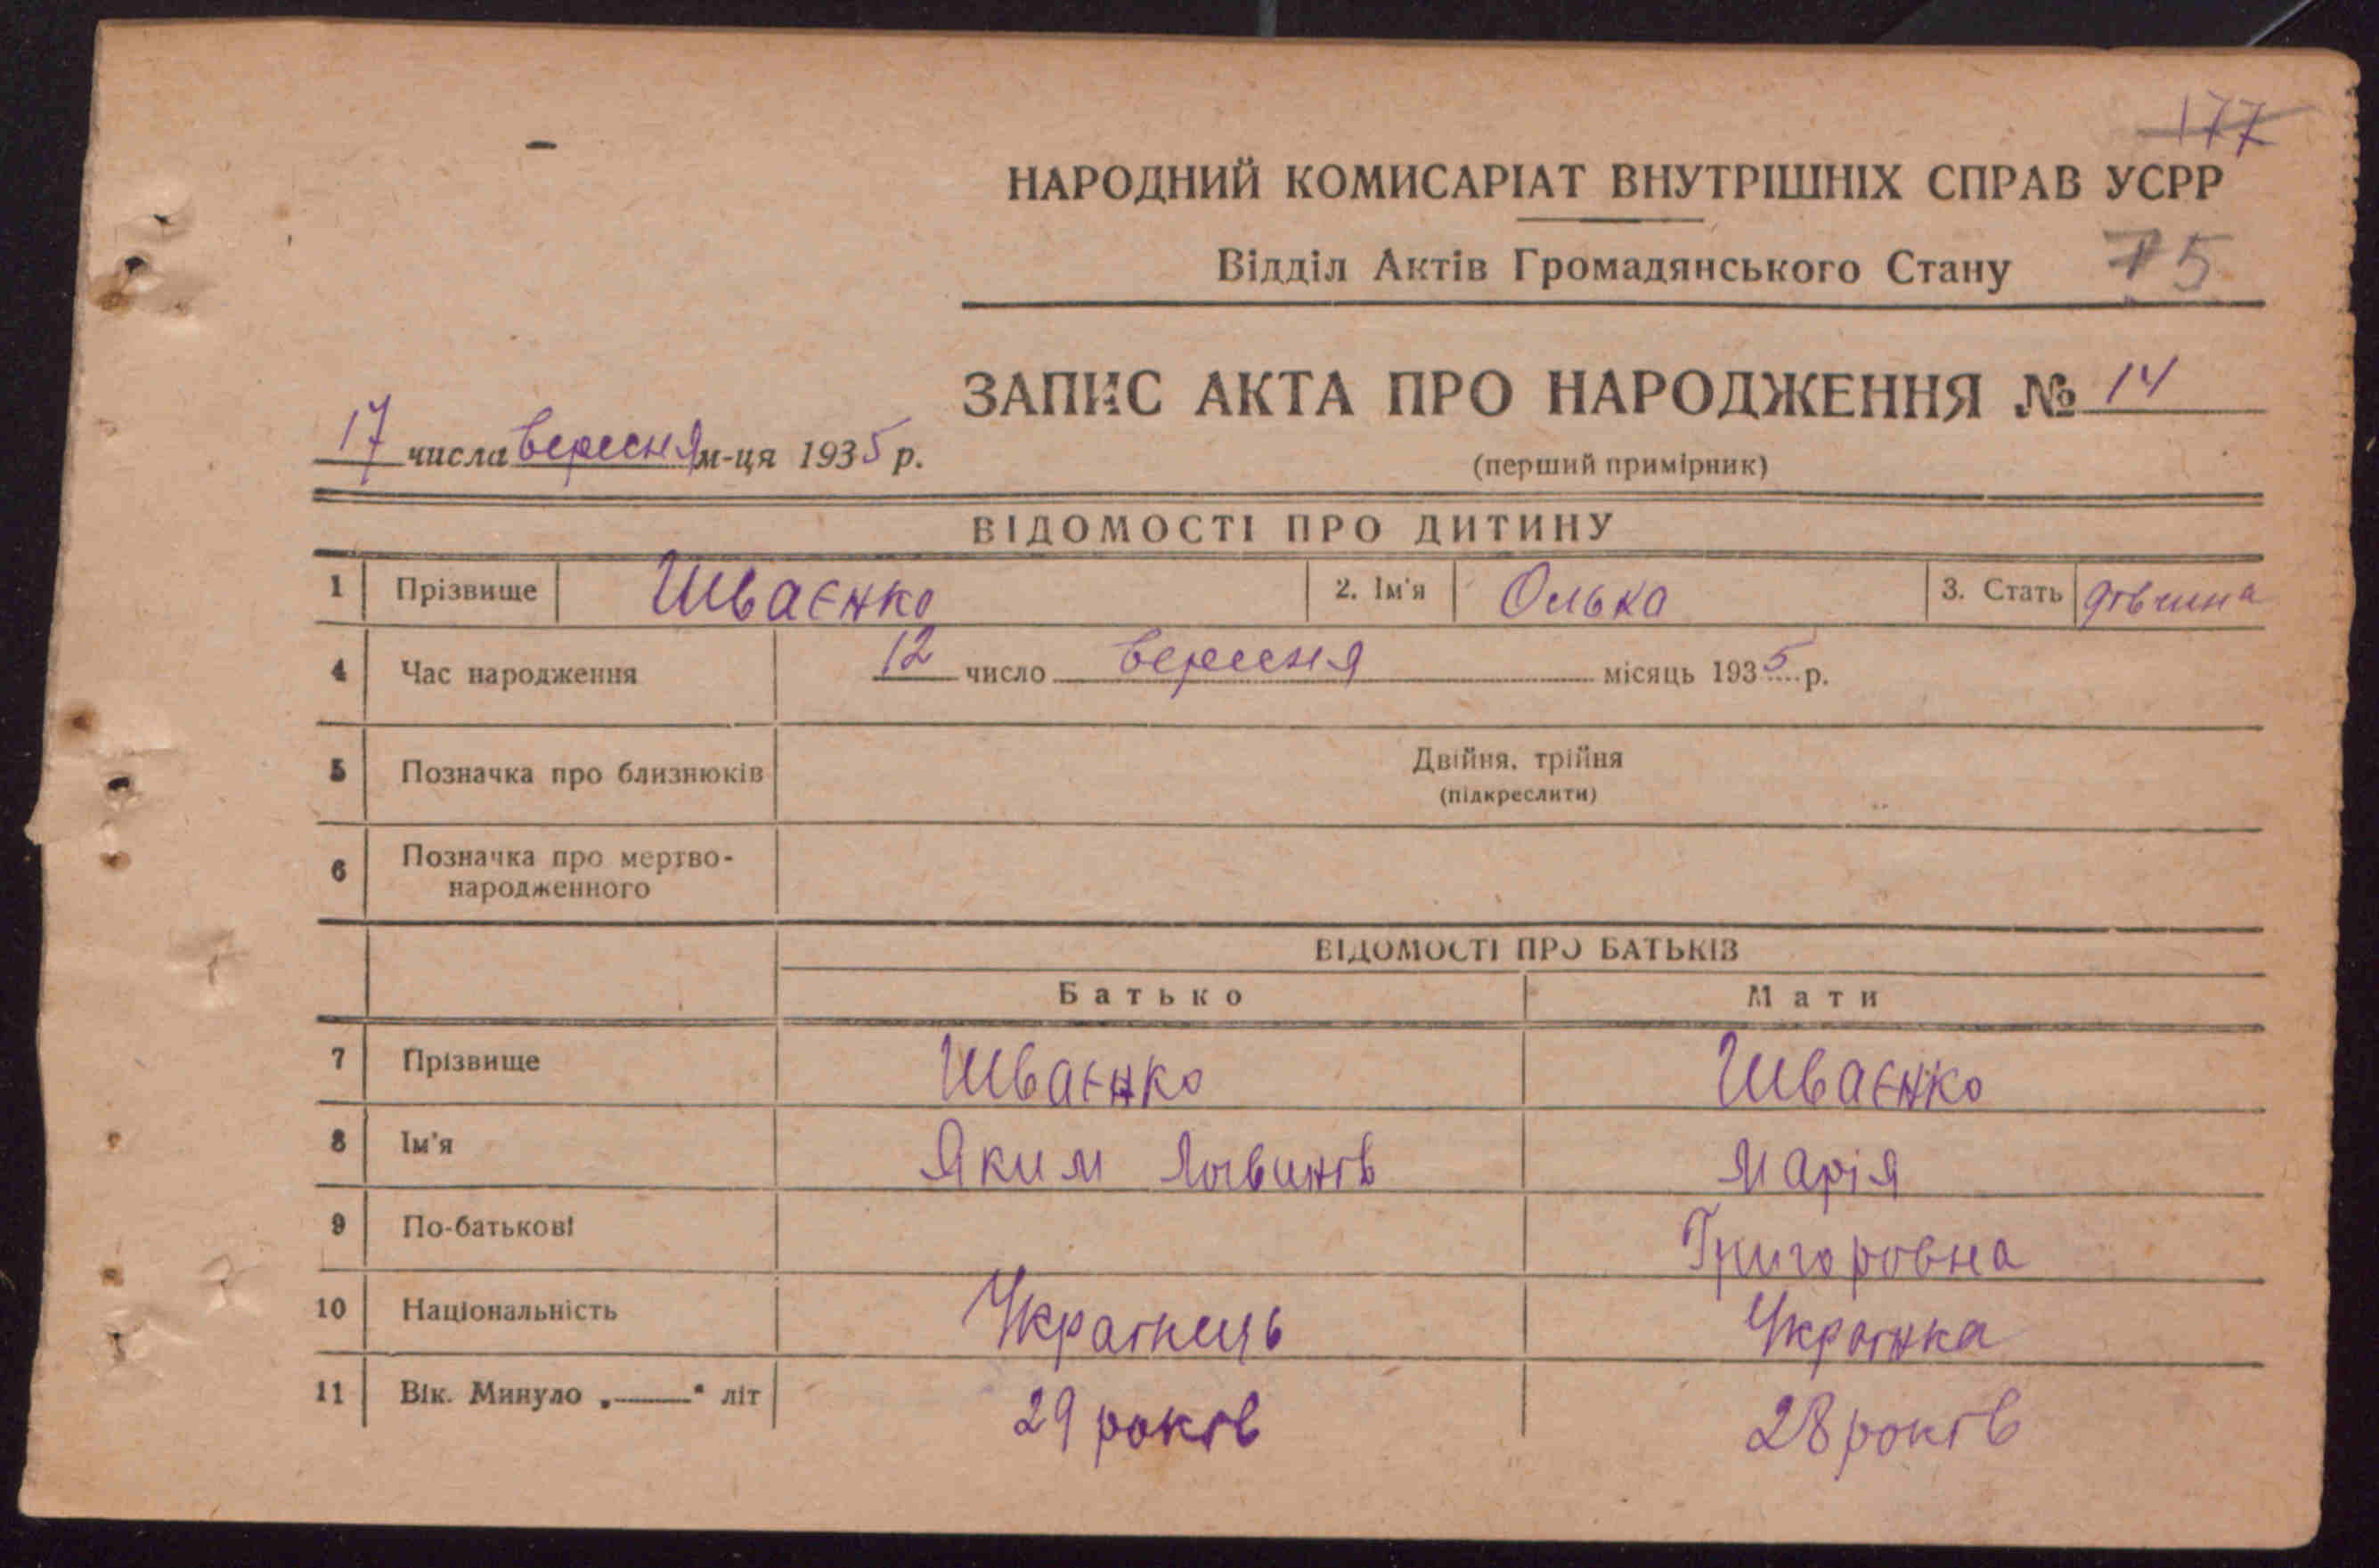 177
НАРОДНИЙ КОМИСАРІАТ ВНУТРІШНІХ СПРАВ УСРР
Відділ Актів Громадянського Стану 75
ЗАПИС АКТА ПРО НАРОДЖЕННЯ № 14
17 числа вересня м-ця 1935 р.
(перший примірник)
ВІДОМОСТІ ПРО ДИТИНУ
1 Прізвище Шваєнко 2. Ім'я Олька 3. Стать дівчина
4 Час народження 12 число вересня місяць 1935 р.
5 Позначка про близнюків Двійня, трійня
(підкреслити)
6 Позначка про мертво-
народженного
ВІДОМОСТІ ПРО БАТЬКІВ
Батько Мати
7 Прізвище Шваєнко Шваєнко
8 Ім'я Яким Марія
9 По-батькові Григоровна
10 Національність Українець Українка
11 Вік. Минуло „ " літ 29 років 28 років